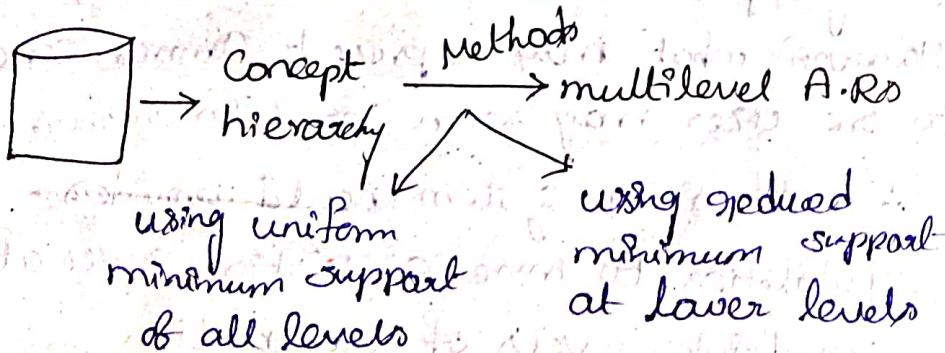 Methods
Concept
hierarchy
multilevel A.Rs
using uniform
minimum support
of all levels
using reduced
minimum support
at lower levels